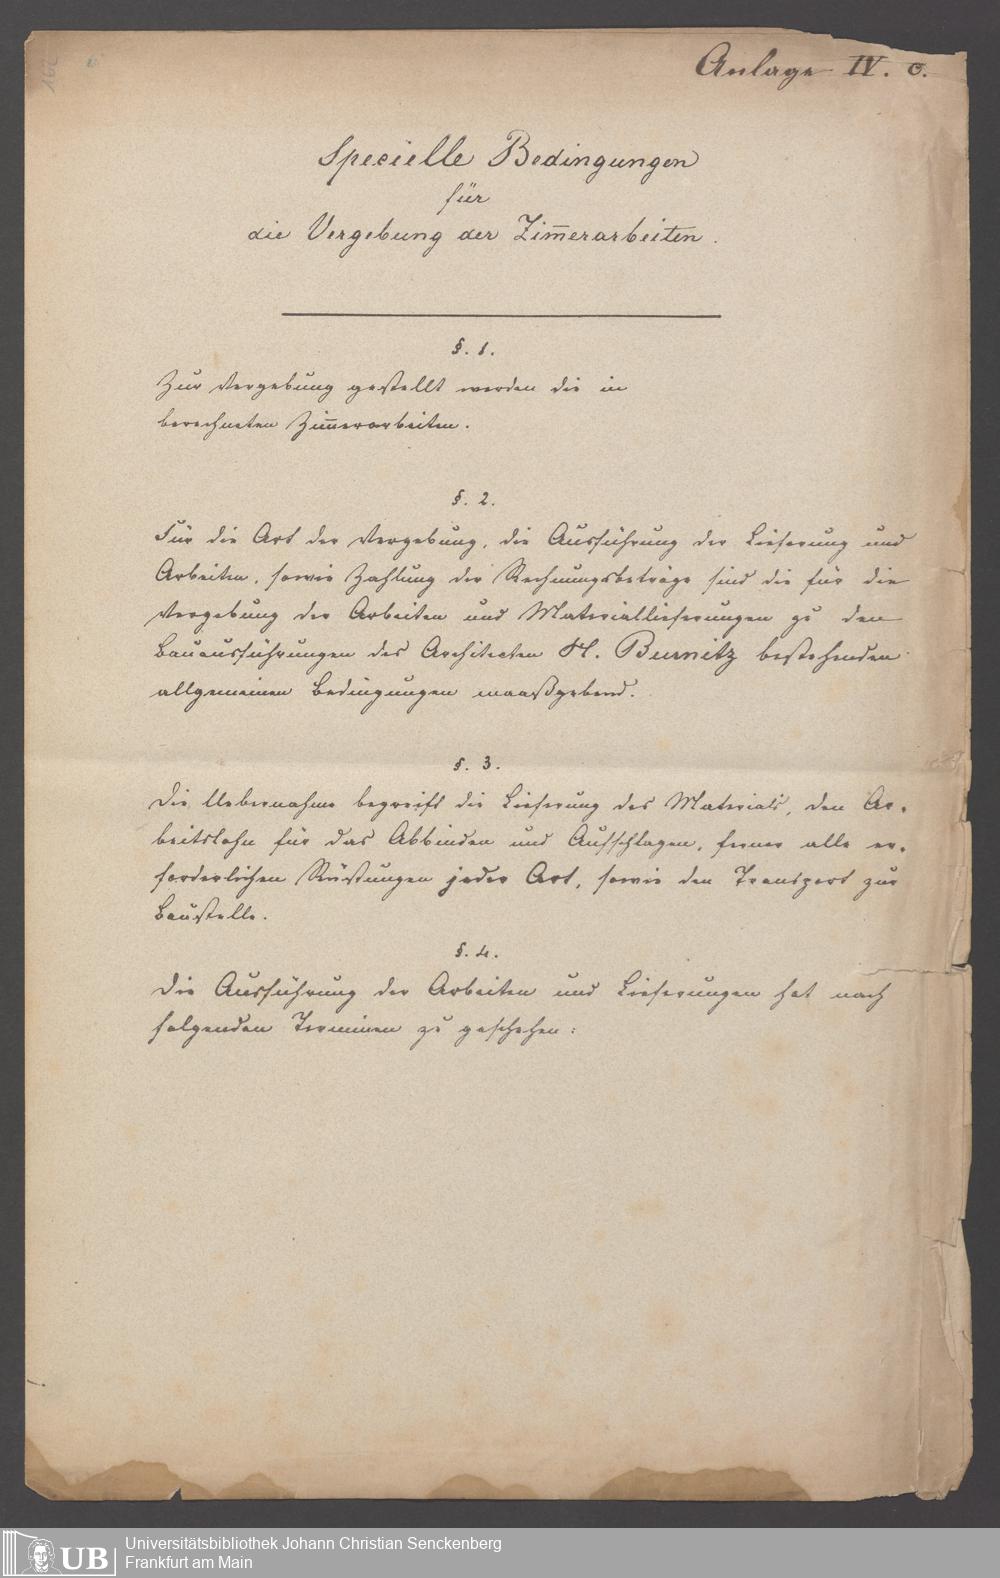 Anlage IV. c.
Specielle Bedingungen
für
die Vergebung der Zim̅erarbeiten.
§. 1.
Zur Vergebung gestellt werden die in
berechneten Zim̅erarbeiten.
§. 2.
Für die Art der Vergebung, die Ausführung der Lieferung und
Arbeiten, sowie Zahlung der Rechnungsbeträge sind die für die
Vergebung der Arbeiten und Materiallieferungen zu den
Bauausführungen des Architecten H. Burnitz bestehenden
allgemeinen Bedingungen maaßgebend.
§. 3.
Die Uebernahme begreift die Lieferung des Materials, den Ar-
beitslohn für das Abbinden und Aufschlagen, ferner alle er-
forderlichen Rüstungen jeder Art, sowie den Transport zur
Baustelle.
§. 4.
Die Ausführung der Arbeiten und Lieferungen hat nach
folgenden Terminen zu geschehen:
UB
Universitätsbibliothek Johann Christian Senckenberg
Frankfurt am Main